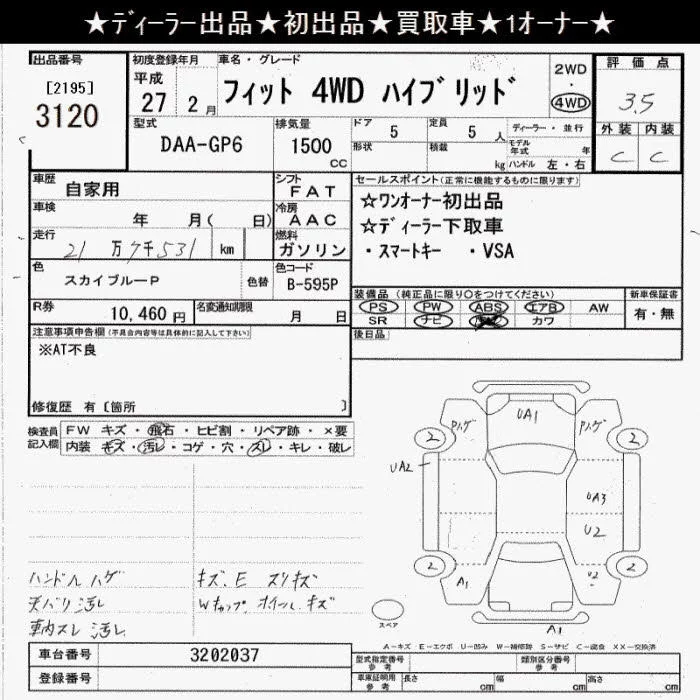 ★ディーラー出品★初出品★買取車★1オーナー★
出品番号
[2195]
3120
初度登録年月
平成
27 2月
車名・グレード
フィット 4WD ハイブリッド
2WD
・
4WD
評価点
3.5
外装 内装
C C
型式
DAA-GP6
排気量
1500
CC
ドア 5
定員 5人
形状
積載 kg
ディーラー・並行
モデル年式 年
ハンドル 左・右
車歴 自家用
シフト FAT
車検 年 月( 日)
冷房 AAC
走行 21万7千531 km
燃料 ガソリン
色 スカイブルーP 色替
色コード B-595P
R券 10,460円
名変通知期限 月 日
セールスポイント(正常に機能するものに限ります)
☆ワンオーナー初出品
☆ディーラー下取車
・スマートキー ・VSA
装備品(純正品に限り○をつけてください)
PS PW ABS エアB AW
SR ナビ カワ
新車保証書
有・無
後日品
注意事項申告欄(不具合内容等は具体的に記入して下さい)
※AT不良
修復歴 有〔箇所 〕
検査員記入欄
FW キズ・飛石・ヒビ割・リペア跡・×要
内装 キズ・汚レ・コゲ・穴・スレ・キレ・破レ
ハンドルハゲ
天バリ汚レ
車内スレ汚レ
キズ、E スリキズ
Wキャップ、ホイールキズ
UA1
ハゲ
ハゲ
2
2
UA2
UA3
U2
2
2
A1
U2
A1
スペア
A-キズ E-エクボ U-凹み W-補修跡 S-サビ C-腐食 XX-交換済
車台番号 3202037
登録番号
型式指定番号 参考
類別区分番号 参考
車庫証明用 参考
長さ cm
幅 cm
高さ cm